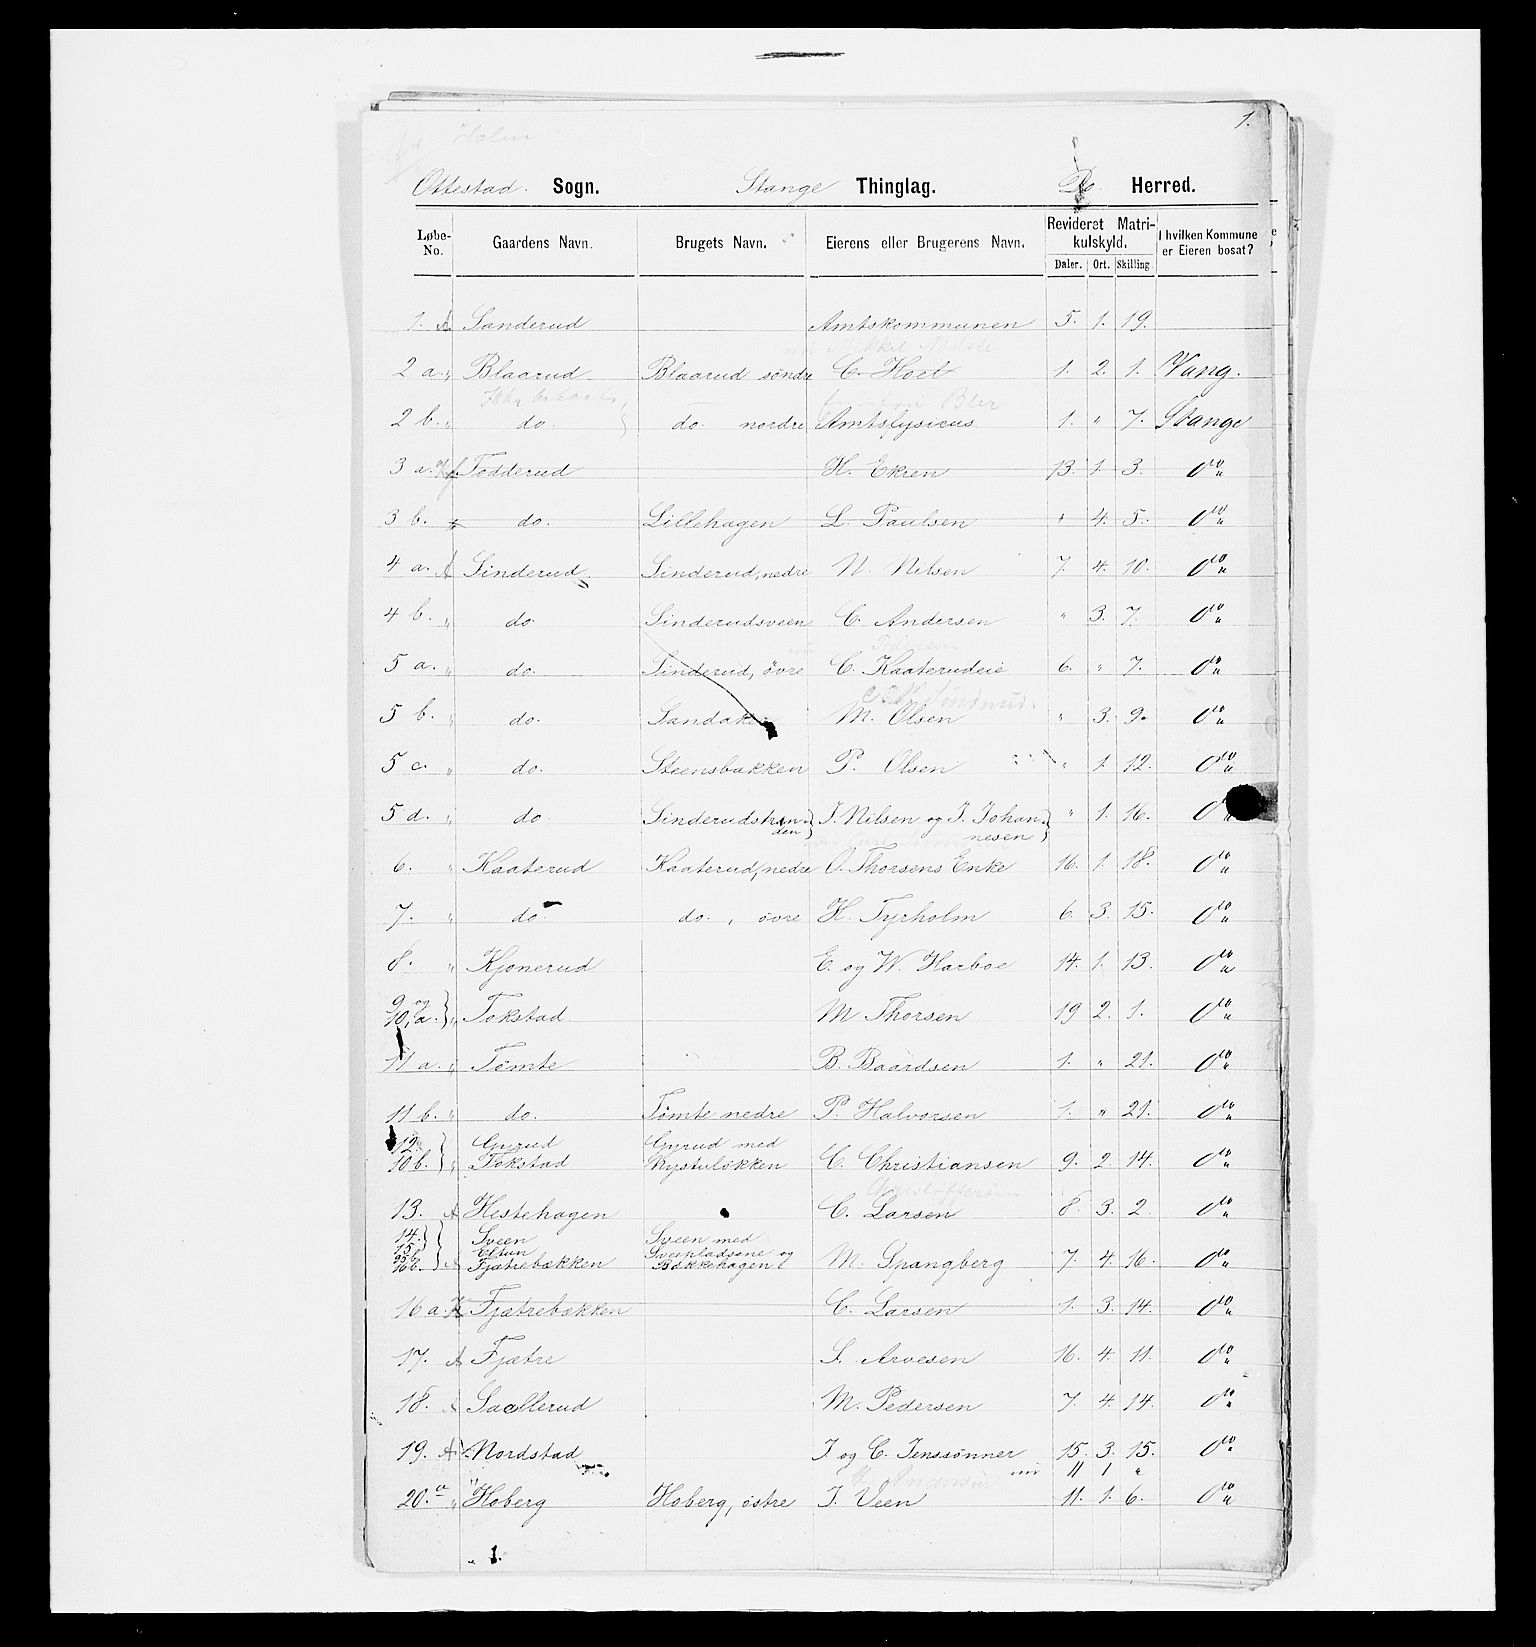 1.
Holm
Ottestad. Sogn. Stange Thinglag. Do. Herred.
Løbe-No. Gaardens Navn. Brugets Navn. Eierens eller Brugerens Navn. Revideret Matrikulskyld. I hvilken Kommune er Eieren bosat?
Daler. Ort. Skilling.
1. A Sanderud Amtskommunen 5. 1. 19.
nu Mikkel
2 a. " Blaarud Blaarud söndre C. Hoel 1. 2. 1. Vang.
2 b. " do. do. nordre Amtsfysicus 1. " 7. Stange
3 a. Tödderud H. Ekren 13. 1. 3. do "
3 b. do. Lillehagen L. Paulsen " 4. 5. do "
4 a. A Sinderud Sinderud, nedre N. Nilsen 7. 4. 10. do "
4 b. " do. Sinderudsveen C. Andersen " 3. 7. do "
5 a. " do. Sinderud, övre C. Kaaterudeie 6. " 7. do "
5 b. " do. Sandaker M. Olsen " 3. 9. do "
5 c. " do. Steensbakken P. Olsen " 1. 12. do "
5 d. " do. Sinderudstranden } J. Nilsen og J. Johannesen } " 1. 16. do
6. " Kaaterud Kaaterud, nedre O. Thorsens Enke 16. 1. 18. do "
7. " do. do. , övre H. Tyrholm 6. 3. 15. do "
8. " Kjonerud E. og W. Harboe 14. 1. 13. do "
9 og 10, a. } " Tokstad M Thorsen 19 2. 1. do "
11 a. " Tömte B. Baardsen 1. " 21. do "
11 b. " do. Tömte nedre P. Halvorsen 1. " 21. do "
12. Gyrud Gyrud med
10 b. } " Tokstad Nystulökken C. Christiansen 9. 2. 14. do "
13. A Hestehagen C. Larsen 8. 3. 2. do "
14. Sveen Sveen med
15. Eltun Sveenpladsene og
16 b. } A Fjætrebækken Bækkehagen M. Spangberg 7. 4. 16. do "
16 a. Fjætrebækken C. Larsen 1. 3. 14. do "
17. A Fjætre S. Arvesen 16. 4. 11. do "
18. Saellerud M. Pedersen 7. 4. 14. do "
19. A Nordstad J. og C. Jenssönner 15. 3. 15. do "
nu 11 1 "
20. a " Hoberg Hoberg, östre J. Veen 11. 1. 6. do "
1.